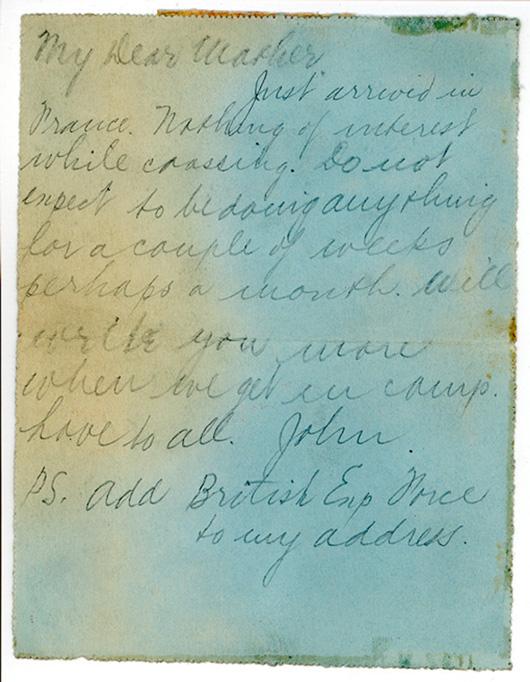 My Dear Mother
Just arrived in
France. Nothing of interest
while crossing. Do not
expect to be doing anything
for a couple of weeks
perhaps a month. Will
write you more
when we get in camp.
Love to all. John.
PS. add British Exp Force
to my address.